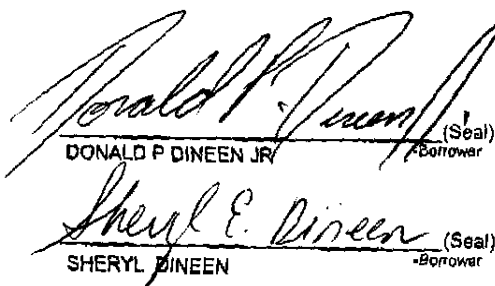 Donald P. Dineen Jr (Seal)
DONALD P DINEEN JR -Borrower
Sheryl E. Dineen (Seal)
SHERYL DINEEN -Borrower